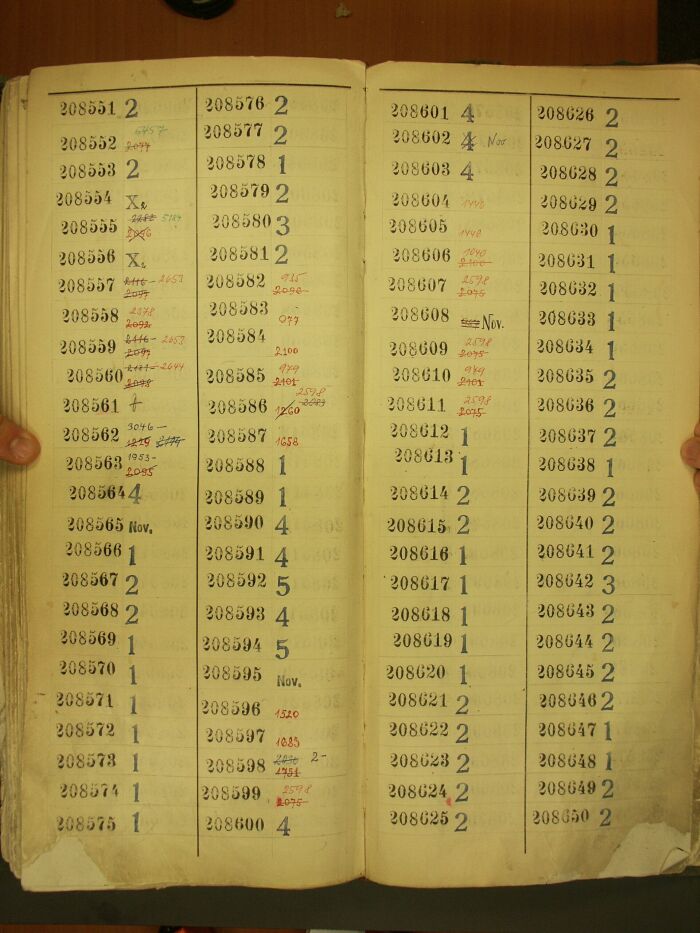 208551 2
208552 6457 2077
208553 2
208554 X2
208555 5124 2096
208556 X2
208557 2116 - 2653 2097
208558 2578 2092
208559 2116 - 2653 2097
208560 2644 2098
208561 +
208562 3046 -
208563 1953 - 2095
208564 4
208565 Nov.
208566 1
208567 2
208568 2
208569 1
208570 1
208571 1
208572 1
208573 1
208574 1
208575 1
208576 2
208577 2
208578 1
208579 2
208580 3
208581 2
208582 935 2098
208583 077
208584 2100
208585 979 2101
208586 2598 1260
208587 1658
208588 1
208589 1
208590 4
208591 4
208592 5
208593 4
208594 5
208595 Nov.
208596 1520
208597 1685
208598 2 - 1751
208599 2598 2075
208600 4
208601 4
208602 4 Nov
208603 4
208604 1448
208605 1448
208606 1040 2100
208607 2598 2075
208608 Nov.
208609 2598 2075
208610 979 2101
208611 2598 2075
208612 1
208613 1
208614 2
208615 2
208616 1
208617 1
208618 1
208619 1
208620 1
208621 2
208622 2
208623 2
208624 2
208625 2
208626 2
208627 2
208628 2
208629 2
208630 1
208631 1
208632 1
208633 1
208634 1
208635 2
208636 2
208637 2
208638 1
208639 2
208640 2
208641 2
208642 3
208643 2
208644 2
208645 2
208646 2
208647 1
208648 1
208649 2
208650 2